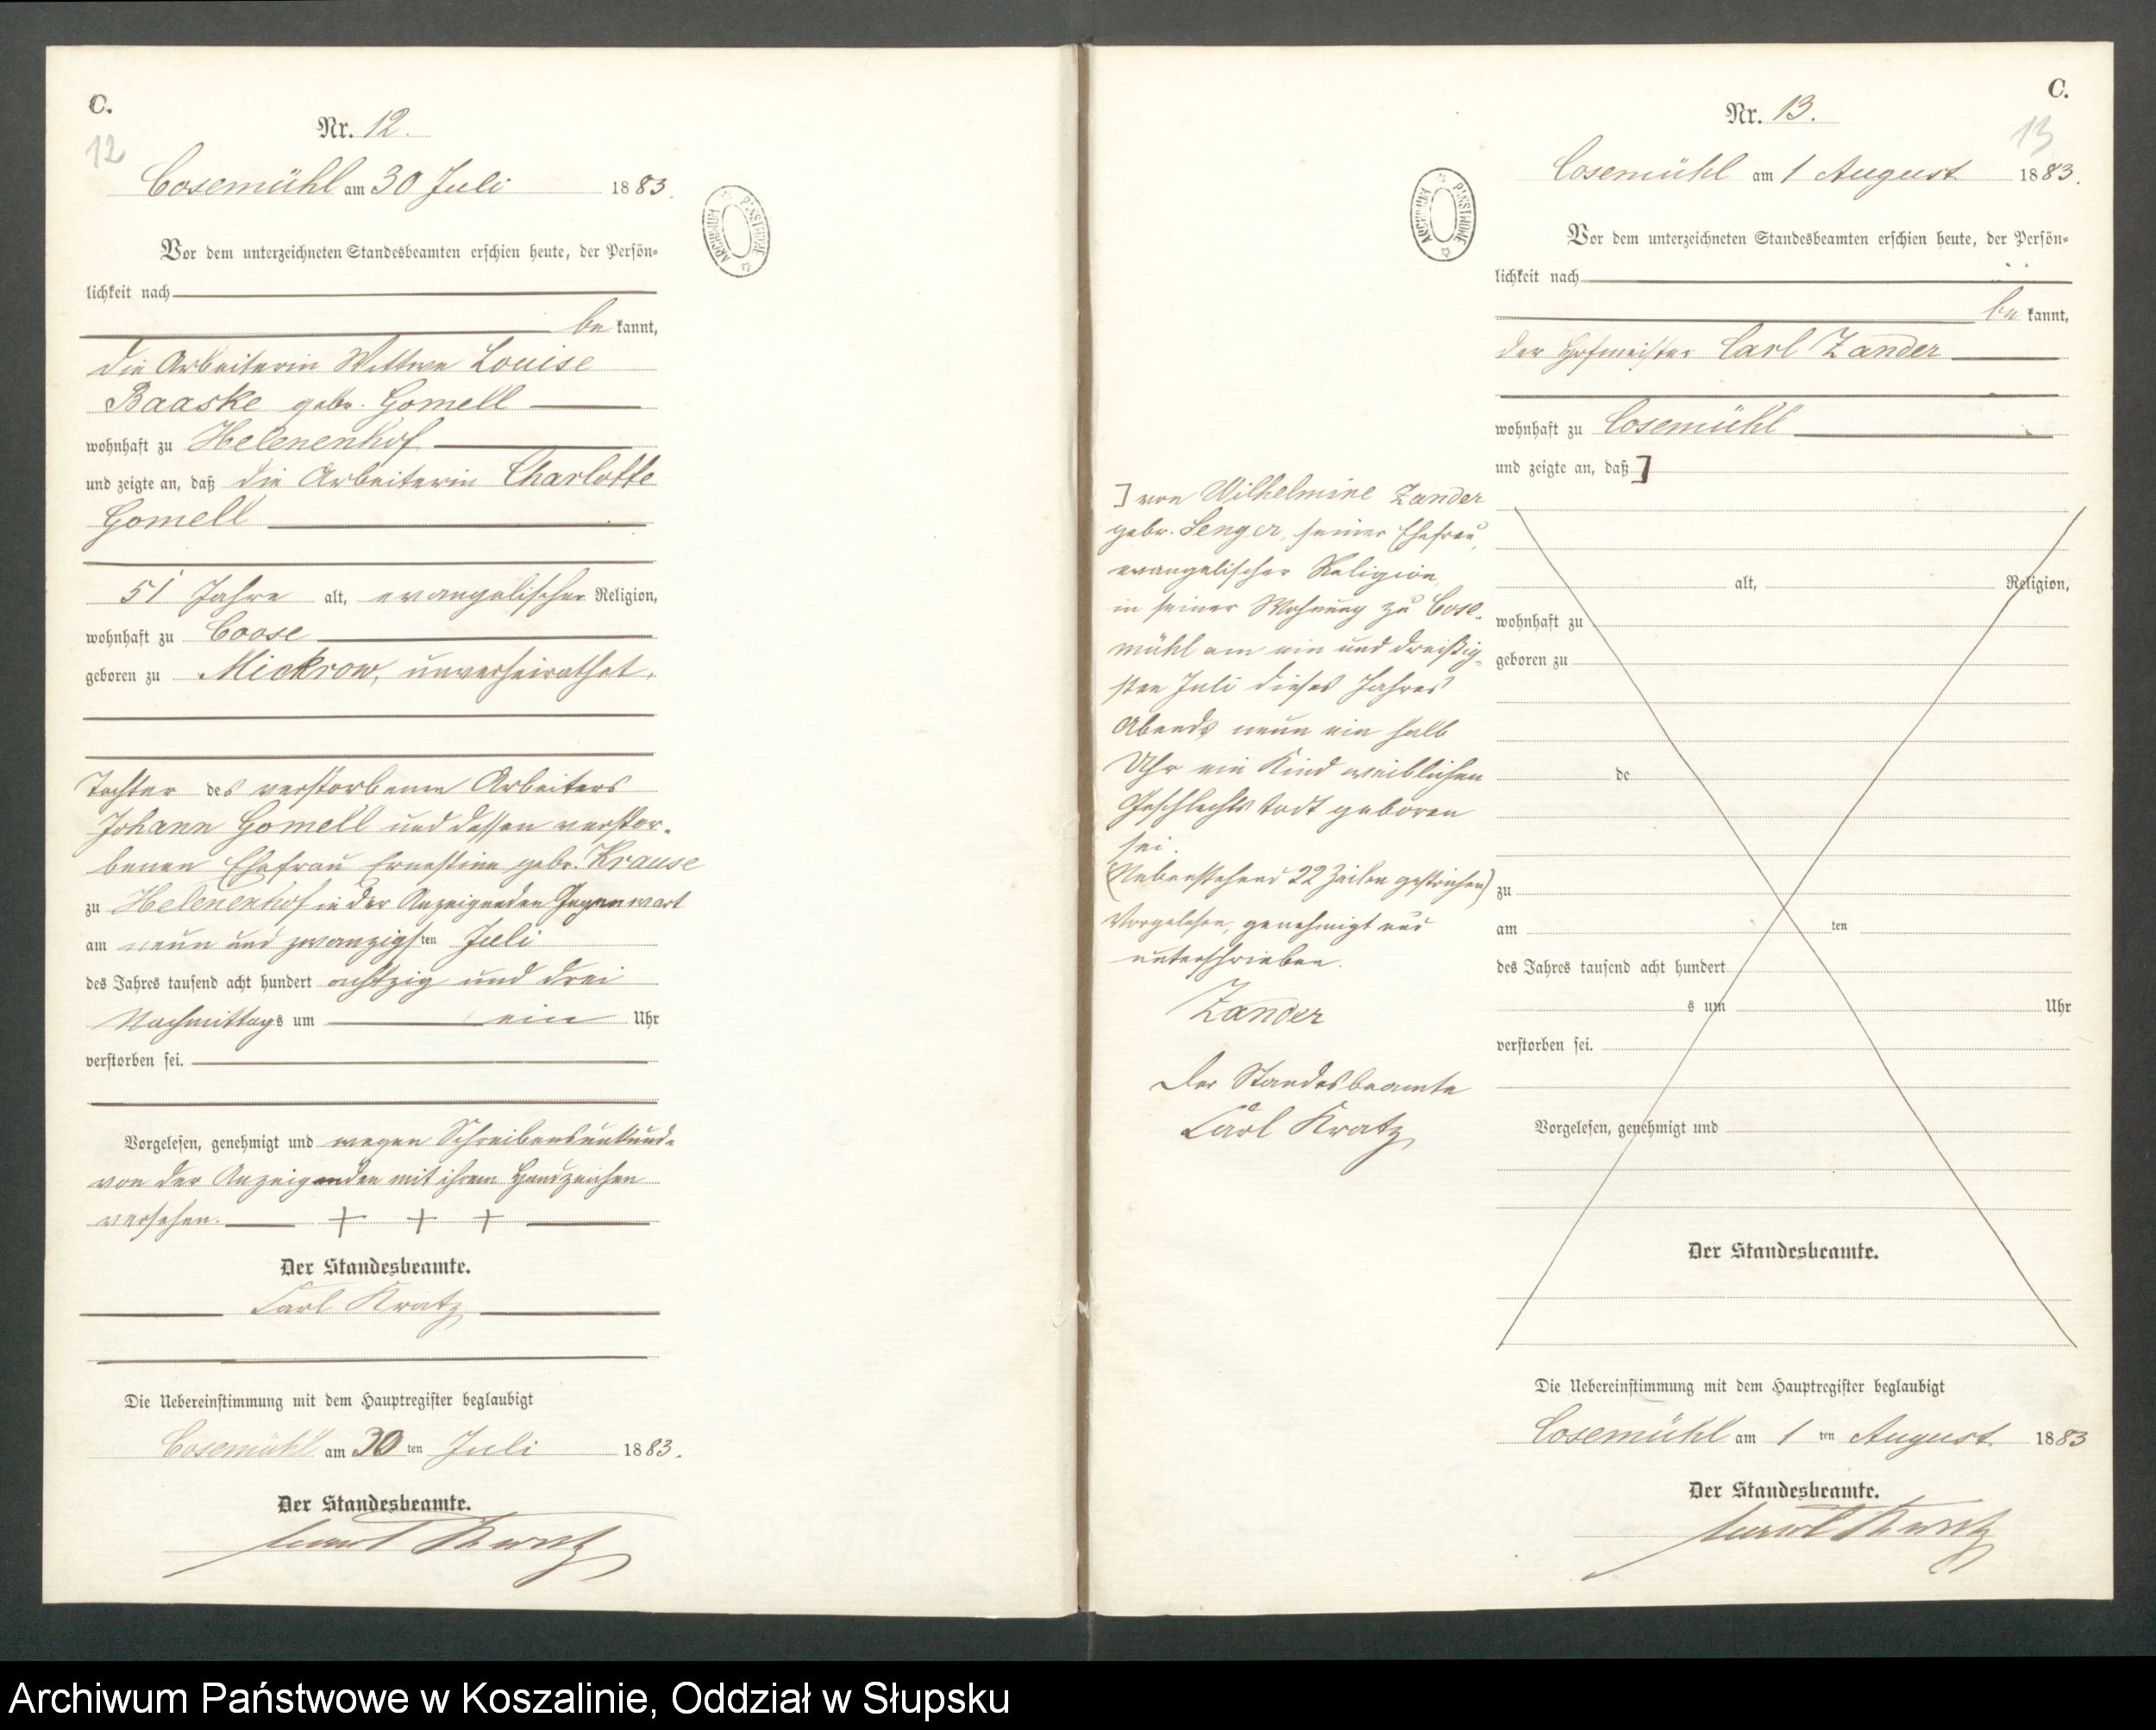 C.
Nr. 12.
12
Cosemühl am 30 Juli 1883.
ARCHIWUM PAŃSTWOWE
Vor dem unterzeichneten Standesbeamten erschien heute, der Persön-
lichkeit nach
be kannt,
die Arbeiterin Wittwe Louise
Baaske gebr. Gomell
wohnhaft zu Helenenhof
und zeigte an, daß die Arbeiterin Charlotte
Gomell
51 Jahre alt, evangelischer Religion,
wohnhaft zu Coose
geboren zu Mickrow, unverheirathet,
Tochter des verstorbenen Arbeiters
Johann Gomell und dessen verstor-
benen Ehefrau Ernestine gebr. Krause
zu Helenenhof in der Anzeigenden Gegenwart
am neun und zwanzigsten Juli
des Jahres tausend acht hundert achtzig und drei
Nachmittags um ein Uhr
verstorben sei.
Vorgelesen, genehmigt und wegen Schreibensunkunde
von der Anzeigenden mit ihrem Handzeichen
versehen. + + +
Der Standesbeamte.
Carl Kratz
Die Uebereinstimmung mit dem Hauptregister beglaubigt
Cosemühl am 30 ten Juli 1883.
Der Standesbeamte.
Carl Kratz
C.
Nr. 13.
13
Cosemühl am 1 August 1883.
ARCHIWUM PAŃSTWOWE
Vor dem unterzeichneten Standesbeamten erschien heute, der Persön-
lichkeit nach
be kannt,
der Hofmeister Carl Zander
wohnhaft zu Cosemühl
und zeigte an, daß ]
] von Wilhelmine Zander
gebr. Senger, seiner Ehefrau,
evangelischer Religion,
in seiner Wohnung zu Cose-
mühl am ein und dreißig-
sten Juli dieses Jahres
Abends neun ein halb
Uhr ein Kind weiblichen
Geschlechts todt geboren
sei.
(Nebenstehend 22 Zeilen gestrichen)
Vorgelesen, genehmigt und
unterschrieben.
Zander
Der Standesbeamte
Carl Kratz
alt, Religion,
wohnhaft zu
geboren zu
de
zu
am ten
des Jahres tausend acht hundert
s um Uhr
verstorben sei.
Vorgelesen, genehmigt und
Der Standesbeamte.
Die Uebereinstimmung mit dem Hauptregister beglaubigt
Cosemühl am 1 ten August 1883
Der Standesbeamte.
Carl Kratz
Archiwum Państwowe w Koszalinie, Oddział w Słupsku